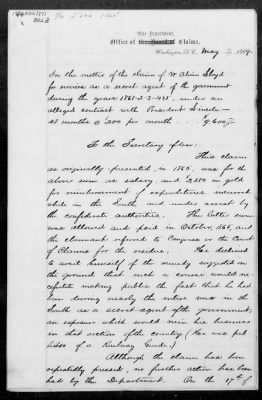 War Department,
Office of Claims,
Washington, D.C. May 2, 1889.
In the matter of the claim of W. Alvin Lloyd
for service as a secret agent of the government
during the years 1861-2-3-4&5, under an
alleged contract with President Lincoln—
48 months @ 200 per month $9600
To the Secretary of War.
This claim
as originally presented, in 1865, was for the
above sum as salary, and $2,380 in gold
for reimbursement of expenditures incurred
while in the South and under arrest by
the confederate authorities. The latter sum
was allowed and paid in October, 1865, and
the claimant referred to Congress or the Court
of Claims for the residue. He declined
to avail himself of the remedy suggested on
the ground that such a course would ne-
cessitate making public the fact that he had
been during nearly the entire war in the
South as a secret agent of the government,
an exposure which would ruin his business
in that section of the country (He was pub
lisher of a Railway Guide.)
Although the claim has been
repeatedly pressed, no further action has been
had by the Department. On the 17th of